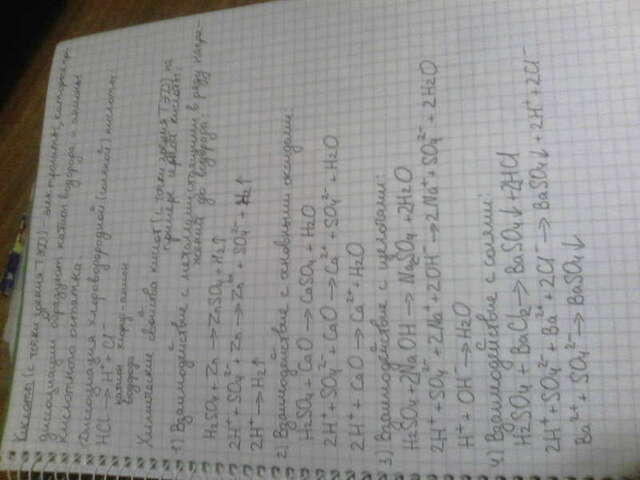 Кислоты (с точки зрения ТЭД) – электролиты, которые при
диссоциации образуют катион водорода и анионы
кислотного остатка.
Диссоциация хлороводородной (соляной) кислоты:
HCl → H⁺ + Cl⁻
катион хлорид-анион
водорода
Химические свойства кислот (с точки зрения (ТЭД) на
примере серной кислоты
1) Взаимодействие с металлами, стоящими в ряду напря-
жений до водорода:
H2SO4 + Zn → ZnSO4 + H2↑
2H⁺ + SO4²⁻ + Zn → Zn²⁺ + SO4²⁻ + H2↑
2H⁺ → H2↑
2) Взаимодействие с основными оксидами:
H2SO4 + CaO → CaSO4 + H2O
2H⁺ + SO4²⁻ + CaO → Ca²⁺ + SO4²⁻ + H2O
2H⁺ + CaO → Ca²⁺ + H2O
3) Взаимодействие с щелочами:
H2SO4 + 2NaOH → Na2SO4 + 2H2O
2H⁺ + SO4²⁻ + 2Na⁺ + 2OH⁻ → 2Na⁺ + SO4²⁻ + 2H2O
H⁺ + OH⁻ → H2O
4) Взаимодействие с солями:
H2SO4 + BaCl2 → BaSO4↓ + 2HCl
2H⁺ + SO4²⁻ + Ba²⁺ + 2Cl⁻ → BaSO4↓ + 2H⁺ + 2Cl⁻
Ba²⁺ + SO4²⁻ → BaSO4↓